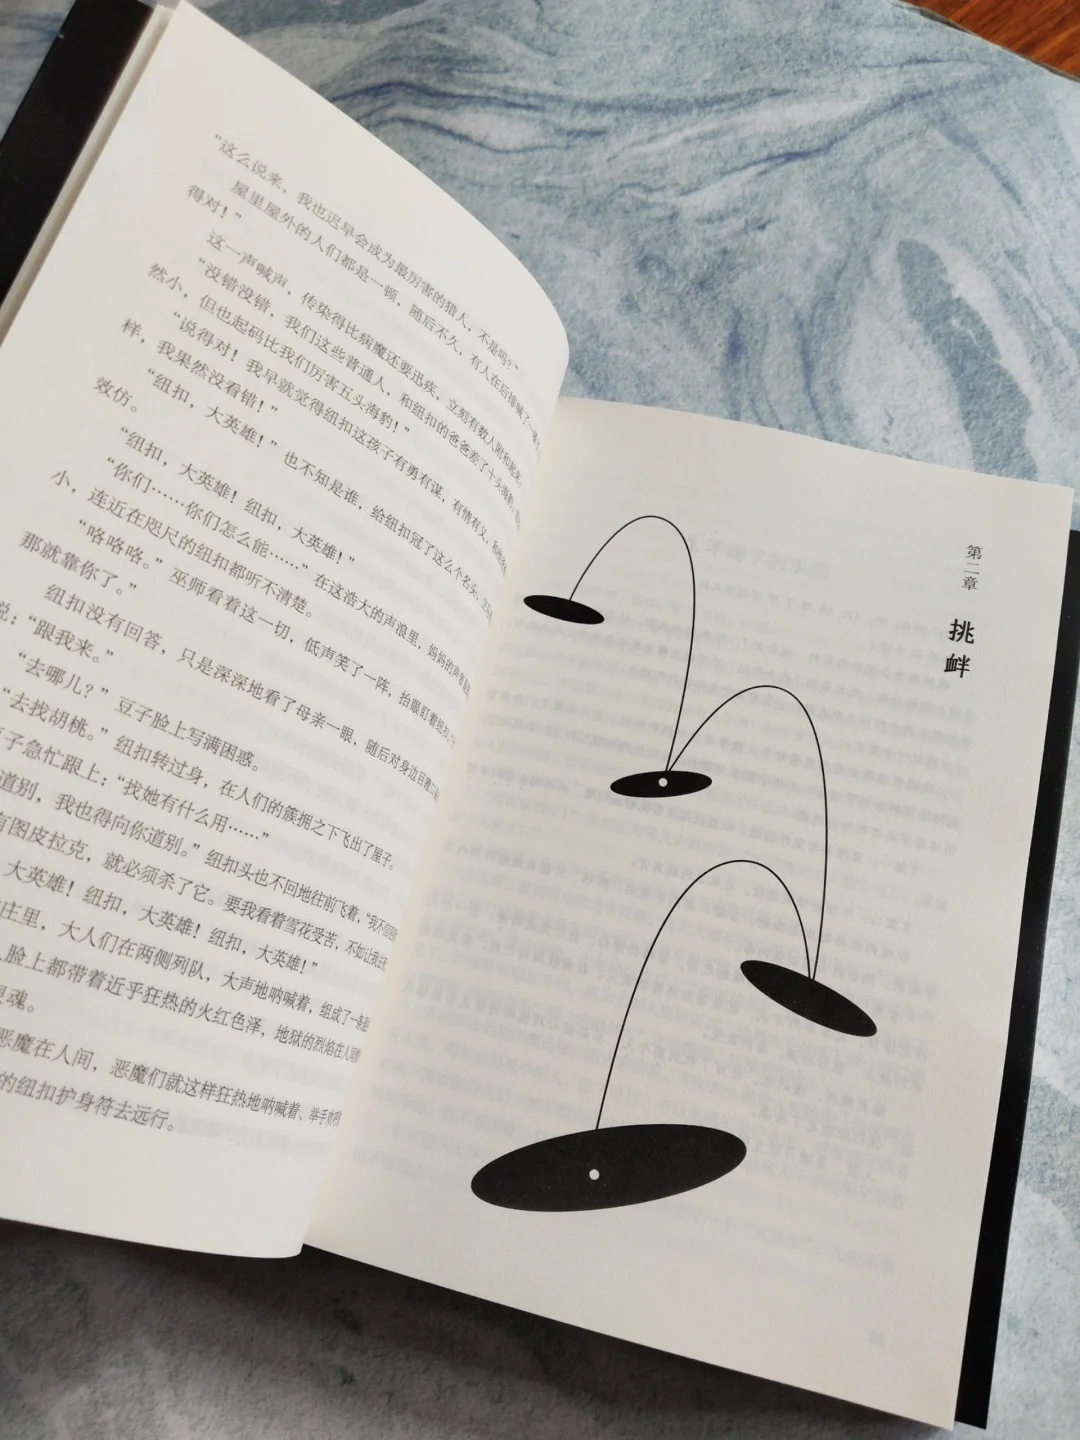 “这么说来，我也迟早会成为最厉害的猎人，不是吗？”
屋里屋外的人们都是一顿，随后不久，有人在后排喊了一嗓
得对！”
这一声喊声，传染得比病魔还要迅疾，立刻有数人附和起来。
“没错没错，我们这些普通人，和纽扣的爸爸差了十头海豹，
然小，但也起码比我们厉害五头海豹！”
“说得对！我早就觉得纽扣这孩子有勇有谋，有情有义，和他爸
样，我果然没看错！”
“纽扣，大英雄！”也不知是谁，给纽扣冠了这么个名头，
效仿。
“纽扣，大英雄！纽扣，大英雄！”
“你们……你们怎么能……”在这浩大的声浪里，妈妈的声音
小，连近在咫尺的纽扣都听不清楚。
“咯咯咯。”巫师看着这一切，低声笑了一阵，抬眼盯着纽扣，
那就靠你了。”
纽扣没有回答，只是深深地看了母亲一眼，随后对身边目瞪口
说：“跟我来。”
“去哪儿？”豆子脸上写满困惑。
“去找胡桃。”纽扣转过身，在人们的簇拥之下飞出了屋子。
子急忙跟上：“找她有什么用……”
道别，我也得向你道别。”纽扣头也不回地往前飞着，“我不
有图皮拉克，就必须杀了它。要我看着雪花受苦，不如让我去死
大英雄！纽扣，大英雄！纽扣，大英雄！”
庄里，大人们在两侧列队，大声地呐喊着，组成了一条
脸上都带着近乎狂热的火红色泽，地狱的烈焰在人间
灵魂。
恶魔在人间，恶魔们就这样狂热地呐喊着、举手欢呼
的纽扣护身符去远行。
第二章
挑衅